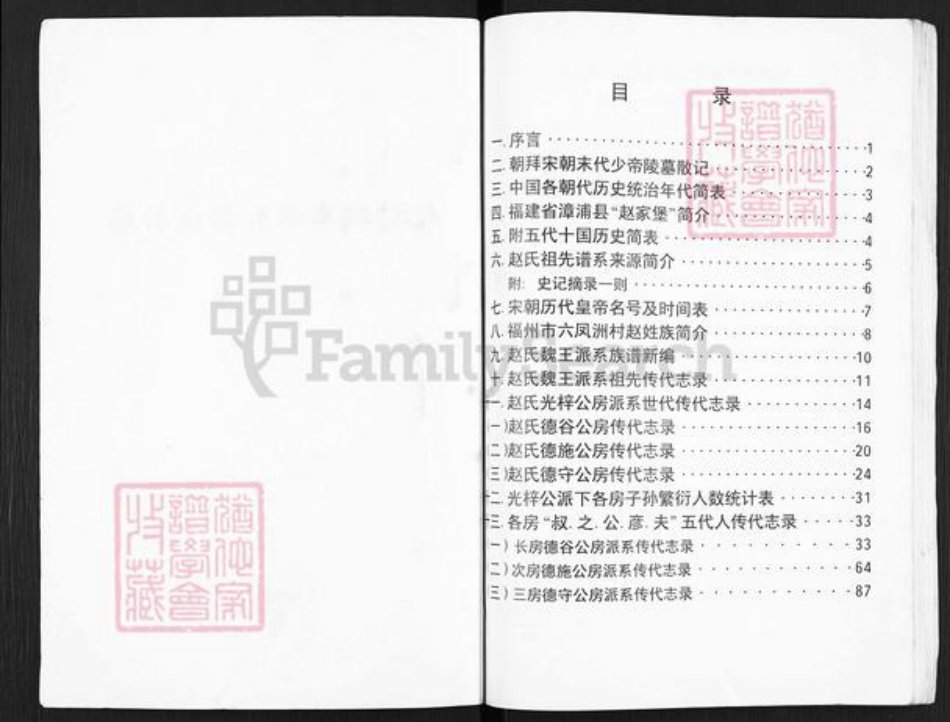 目 录
一.序言 1
二.朝拜宋朝末代少帝陵墓散记 2
三.中国各朝代历史统治年代简表 3
四.福建省漳浦县“赵家堡”简介 4
五.附五代十国历史简表 4
六.赵氏祖先谱系来源简介 5
附: 史记摘录一则 6
七.宋朝历代皇帝名号及时间表 7
八.福州市六凤洲村赵姓族简介 8
九.赵氏魏王派系族谱新编 10
十.赵氏魏王派系祖先传代志录 11
一.赵氏光梓公房派系世代传代志录 14
一)赵氏德谷公房传代志录 16
二)赵氏德施公房传代志录 20
三)赵氏德守公房传代志录 24
十二.光梓公派下各房子孙繁衍人数统计表 31
十三.各房“叔.之.公.彦.夫”五代人传代志录 33
一)长房德谷公房派系传代志录 33
二)次房德施公房派系传代志录 64
三)三房德守公房派系传代志录 87
FamilySearch